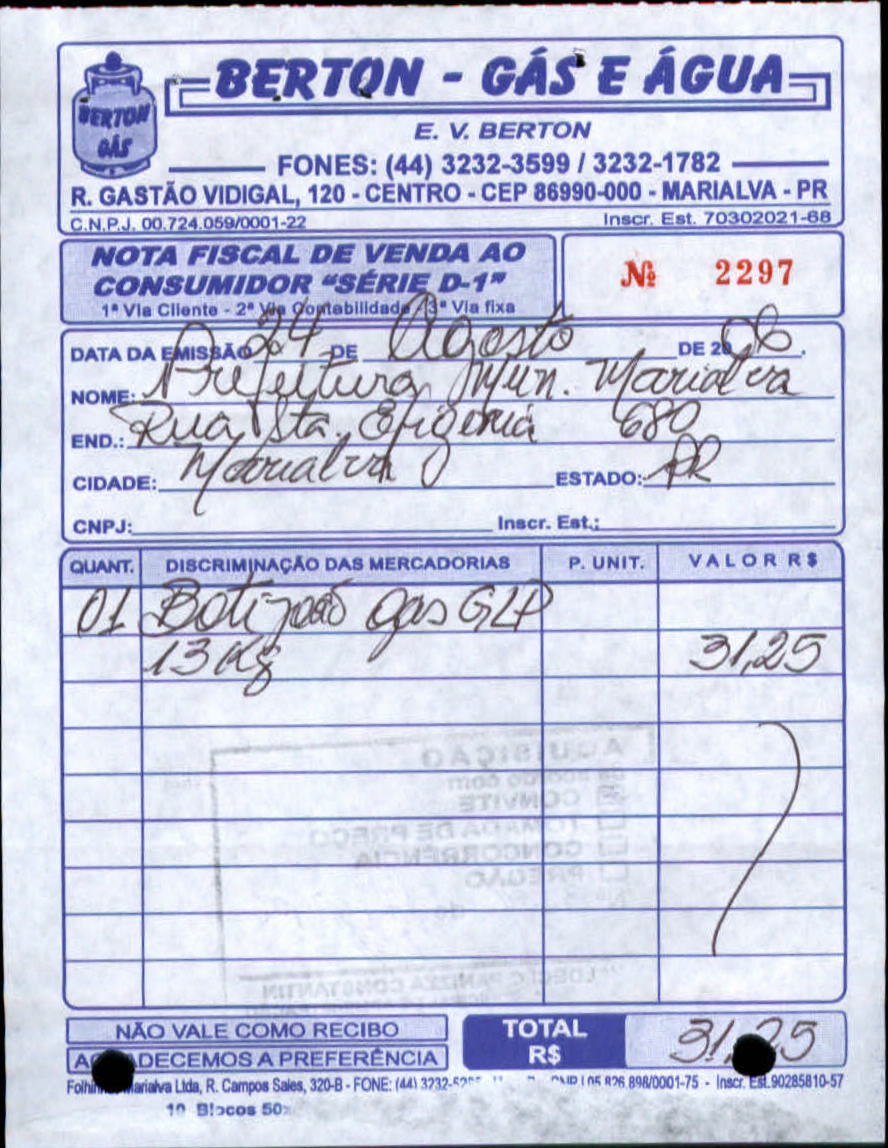 BERTON - GÁS E ÁGUA
BERTON
GÁS
E. V. BERTON
FONES: (44) 3232-3599 / 3232-1782
R. GASTÃO VIDIGAL, 120 - CENTRO - CEP 86990-000 - MARIALVA - PR
C.N.P.J. 00.724.059/0001-22 Inscr. Est. 70302021-68
NOTA FISCAL DE VENDA AO
CONSUMIDOR "SÉRIE D-1"
1ª Via Cliente - 2ª Via Contabilidade - 3ª Via fixa
Nº 2297
DATA DA EMISSÃO 24 DE Agosto DE 2006.
NOME: Prefeitura Mun. Marialva
END.: Rua Sta. Efigenia 680
CIDADE: Marialva ESTADO: PR
CNPJ: Inscr. Est.:
QUANT. DISCRIMINAÇÃO DAS MERCADORIAS P. UNIT. VALOR R$
01 Botijão gas GLP
13 Kg 31,25
AQUISIÇÃO
de acordo com
CONVITE
TOMADA DE PREÇO
CONCORRÊNCIA
PREGÃO
CONSTANTIN
NÃO VALE COMO RECIBO
DECEMOS A PREFERÊNCIA
TOTAL
R$
31,25
Marialva Ltda, R. Campos Sales, 320-B - FONE: (44) 05.826.898/0001-75 - Inscr. Est. 90285810-57
10 Blocos 50x